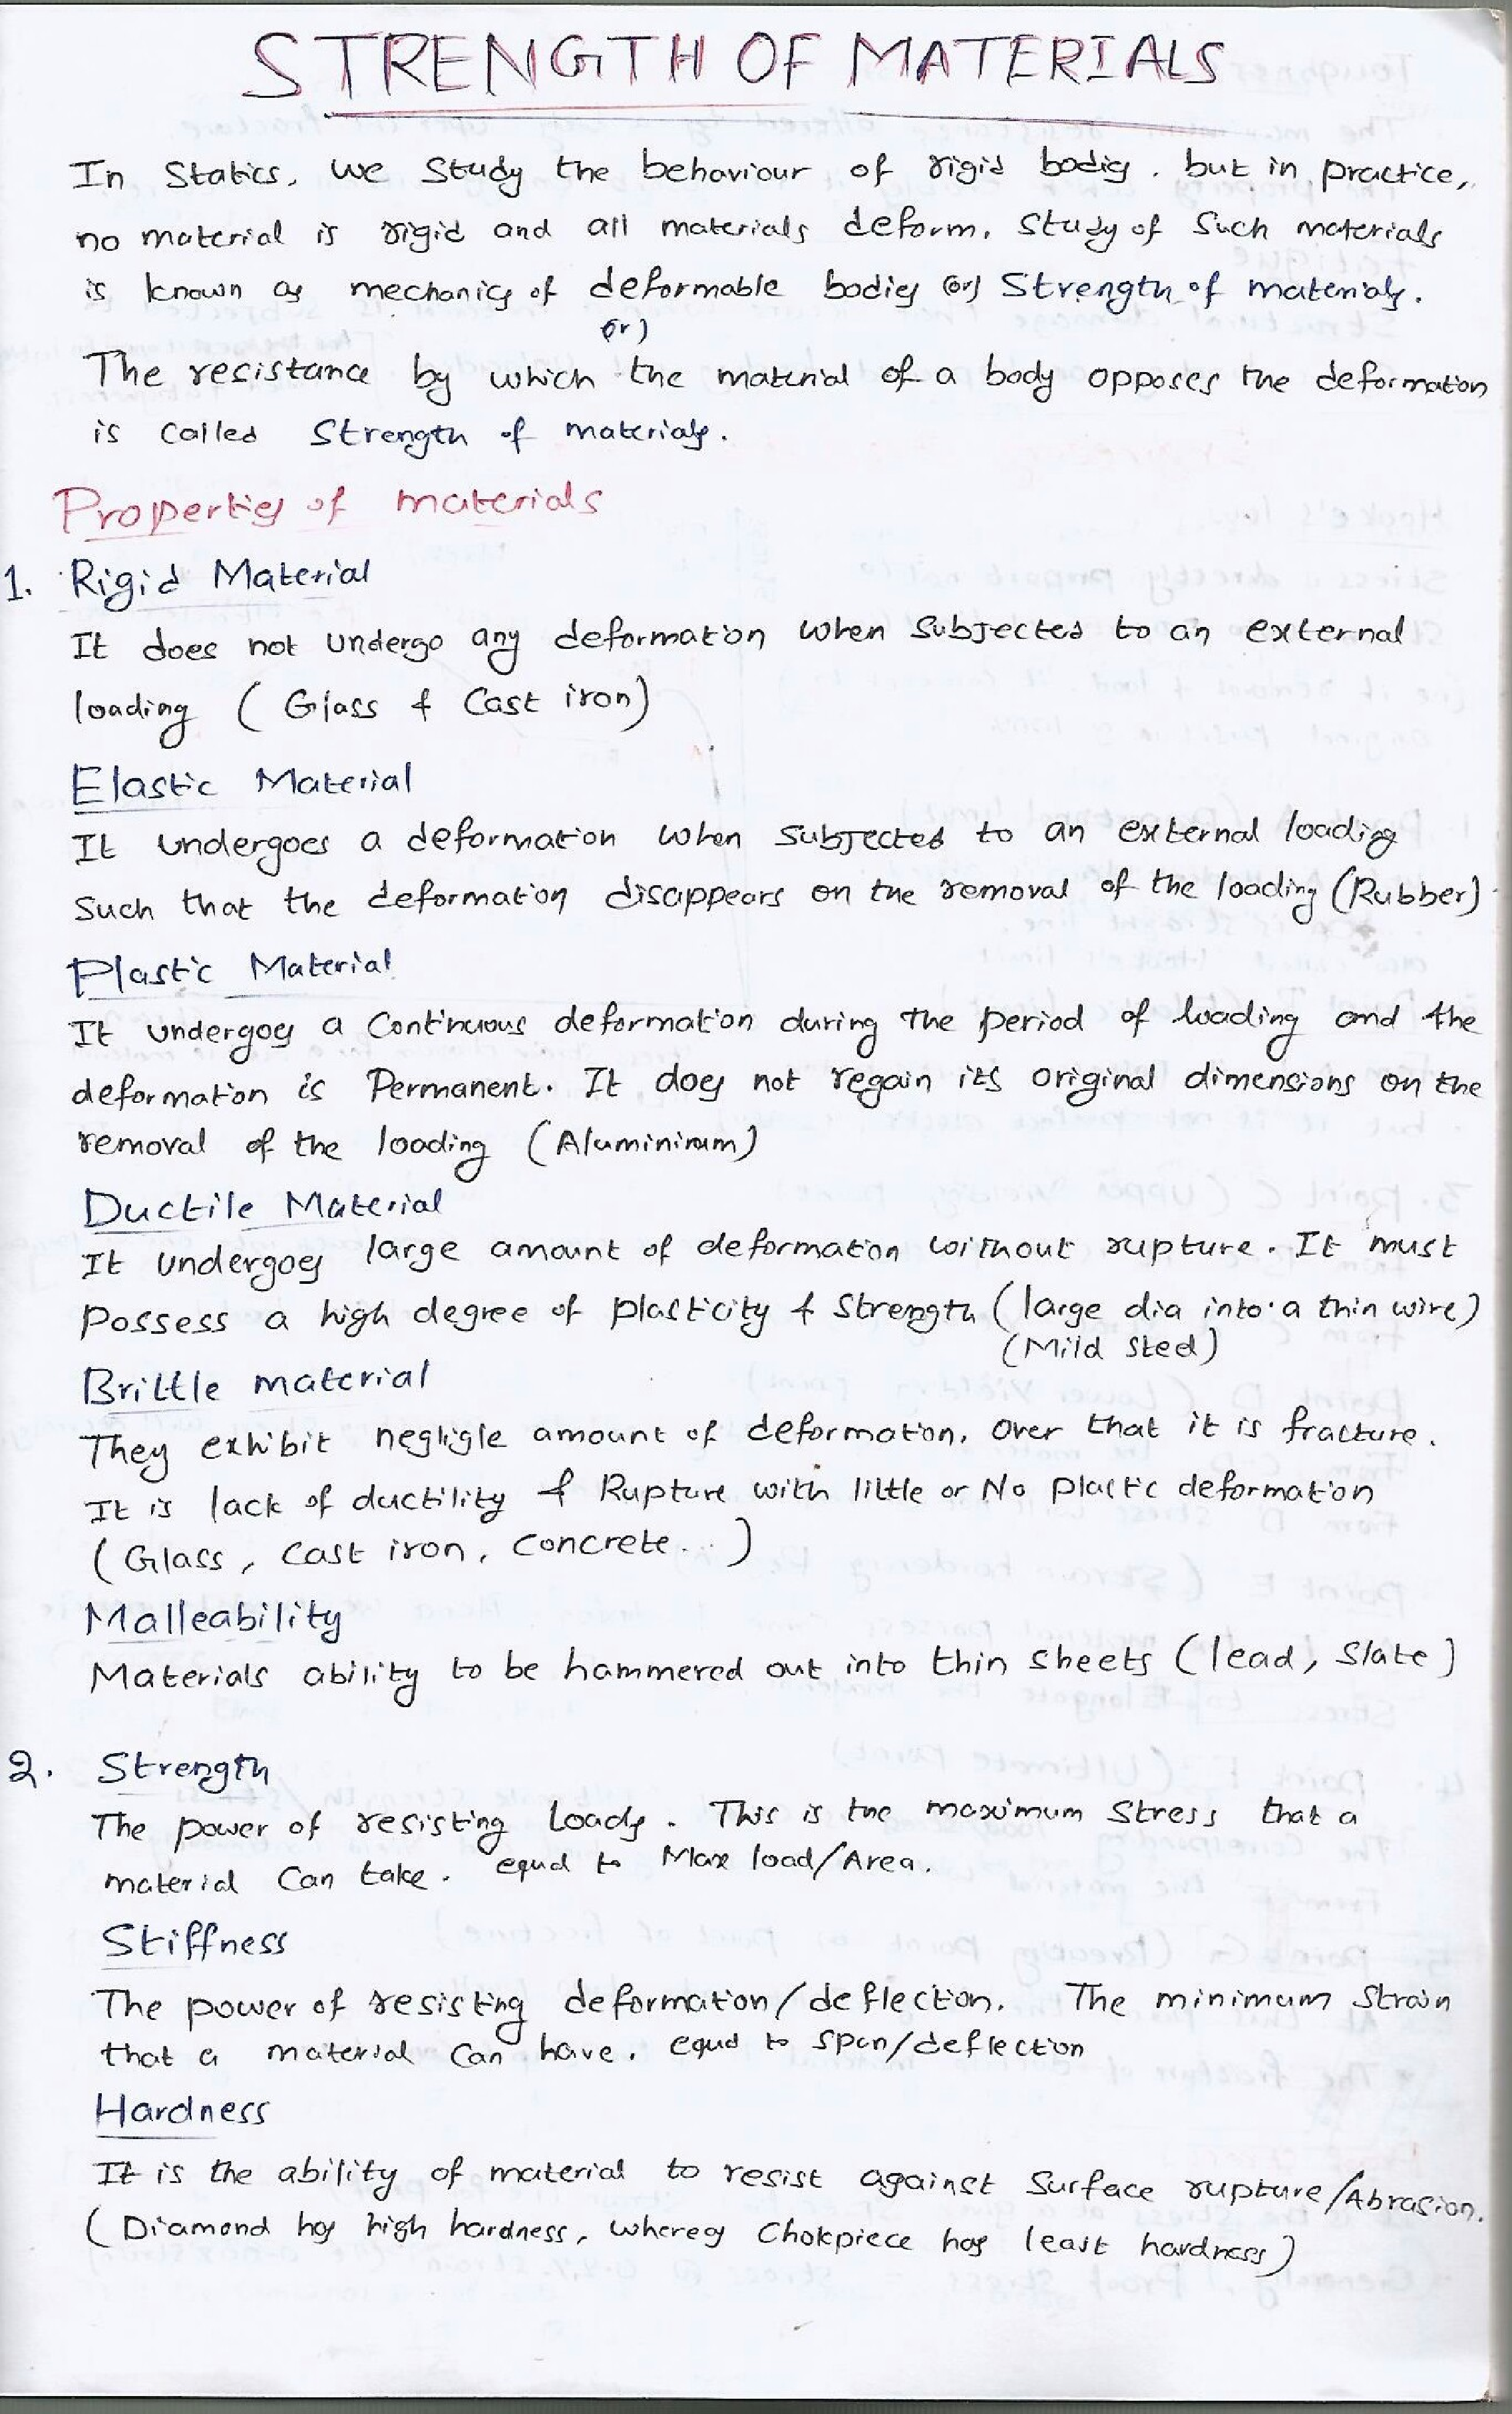 STRENGTH OF MATERIALS
In Statics, we study the behaviour of rigid bodies. but in practice,
no material is rigid and all materials deform. Study of such materials
is known as mechanics of deformable bodies (or) Strength of materials.
(or)
The resistance by which the material of a body opposes the deformation
is called Strength of materials.
Properties of materials
1. Rigid Material
It does not undergo any deformation when subjected to an external
loading (Glass & Cast iron)
Elastic Material
It undergoes a deformation when subjected to an external loading
such that the deformation disappears on the removal of the loading (Rubber)
Plastic Material
It undergoes a continuous deformation during the period of loading and the
deformation is Permanent. It does not regain its original dimensions on the
removal of the loading (Aluminium)
Ductile Material
It undergoes large amount of deformation without rupture. It must
possess a high degree of plasticity & strength (large dia into a thin wire)
(Mild steel)
Brittle material
They exhibit negligle amount of deformation. Over that it is fracture.
It is lack of ductility & Rupture with little or No plastic deformation
(Glass, Cast iron, Concrete...)
Malleability
Materials ability to be hammered out into thin sheets (lead, slate)
2. Strength
The power of resisting Loads. This is the maximum stress that a
material can take. equal to Max load/Area.
Stiffness
The power of resisting deformation/deflection. The minimum Strain
that a material can have. equal to span/deflection
Hardness
It is the ability of material to resist against surface rupture/Abrasion.
(Diamond has high hardness, whereas Chokpiece has least hardness)